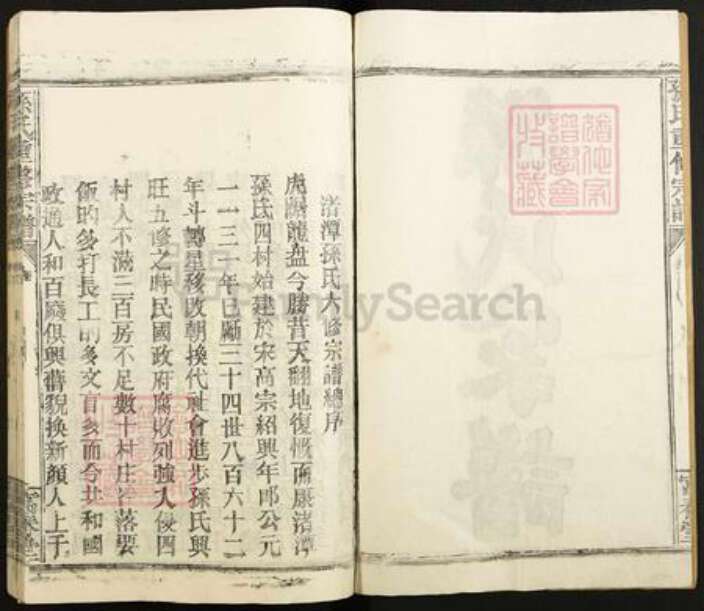 孫氏重修宗譜
渚潭孫氏六修宗譜總序
虎踞龍盘今勝昔天翻地復慨而康渚潭
孫氏四村始建於宋高宗紹興年即公元
一一三一年已歷三十四世八百六十二
年斗轉星移改朝換代社會進步孫氏興
旺五修之時民國政府腐敗列強入侵四
村人不滿三百房不足數十村庄落要
飯的多打長工的多文盲多而今共和國
政通人和百廢俱興舊貌換新顏人上于
孫氏重修宗譜
FamilySearch